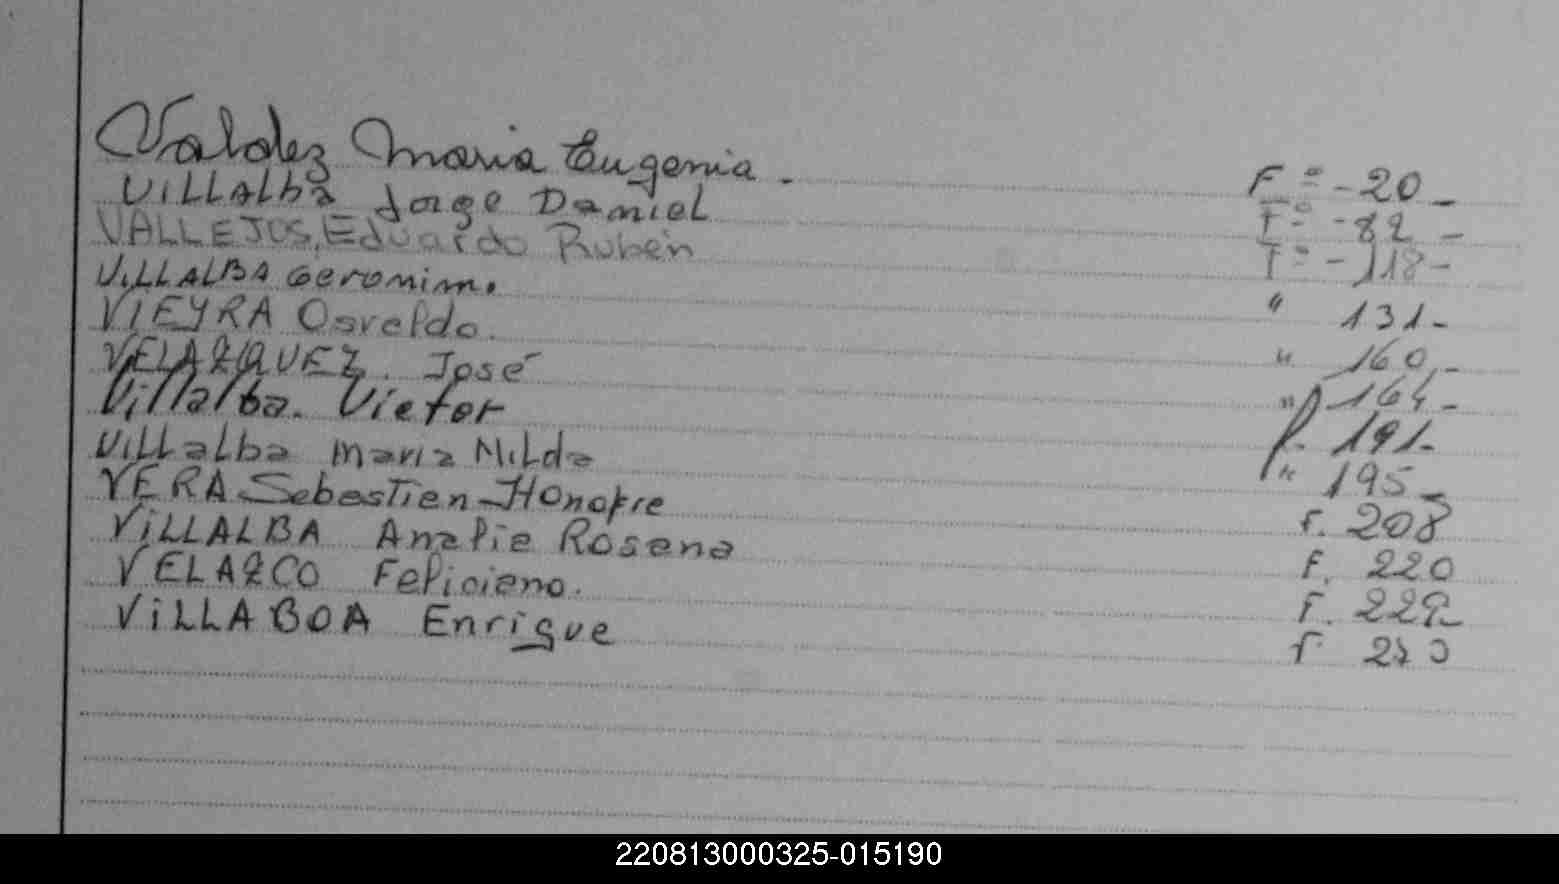 Valdez Maria Eugenia. Fº - 20 -
VILLALba Jorge Daniel Fº - 82 -
VALLEJOS, Eduardo Rubén Fº - 118 -
VILLALBA Geronimo " 131 -
VIEYRA Osvaldo. " 160 -
VELAZQUEZ. José " 164 -
Villalba. Victor f. 191 -
Villalba Maria Nilda " 195 -
VERA Sebastian Honofre F. 208
ViLLALBA Analia Rosana F. 220
VELAZCO Feliciano. F. 229
ViLLABOA Enrique F.
220813000325-015190